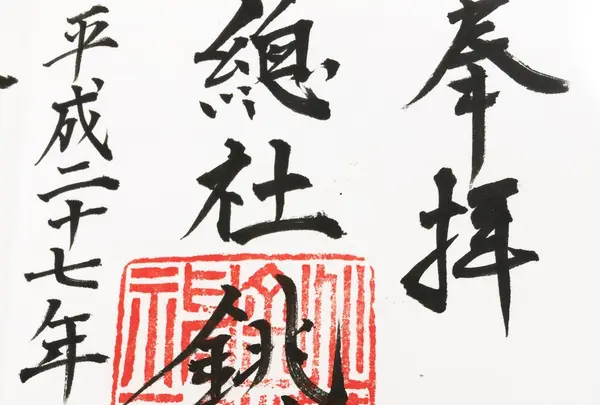 奉拝
總社 銚
平成二十七年